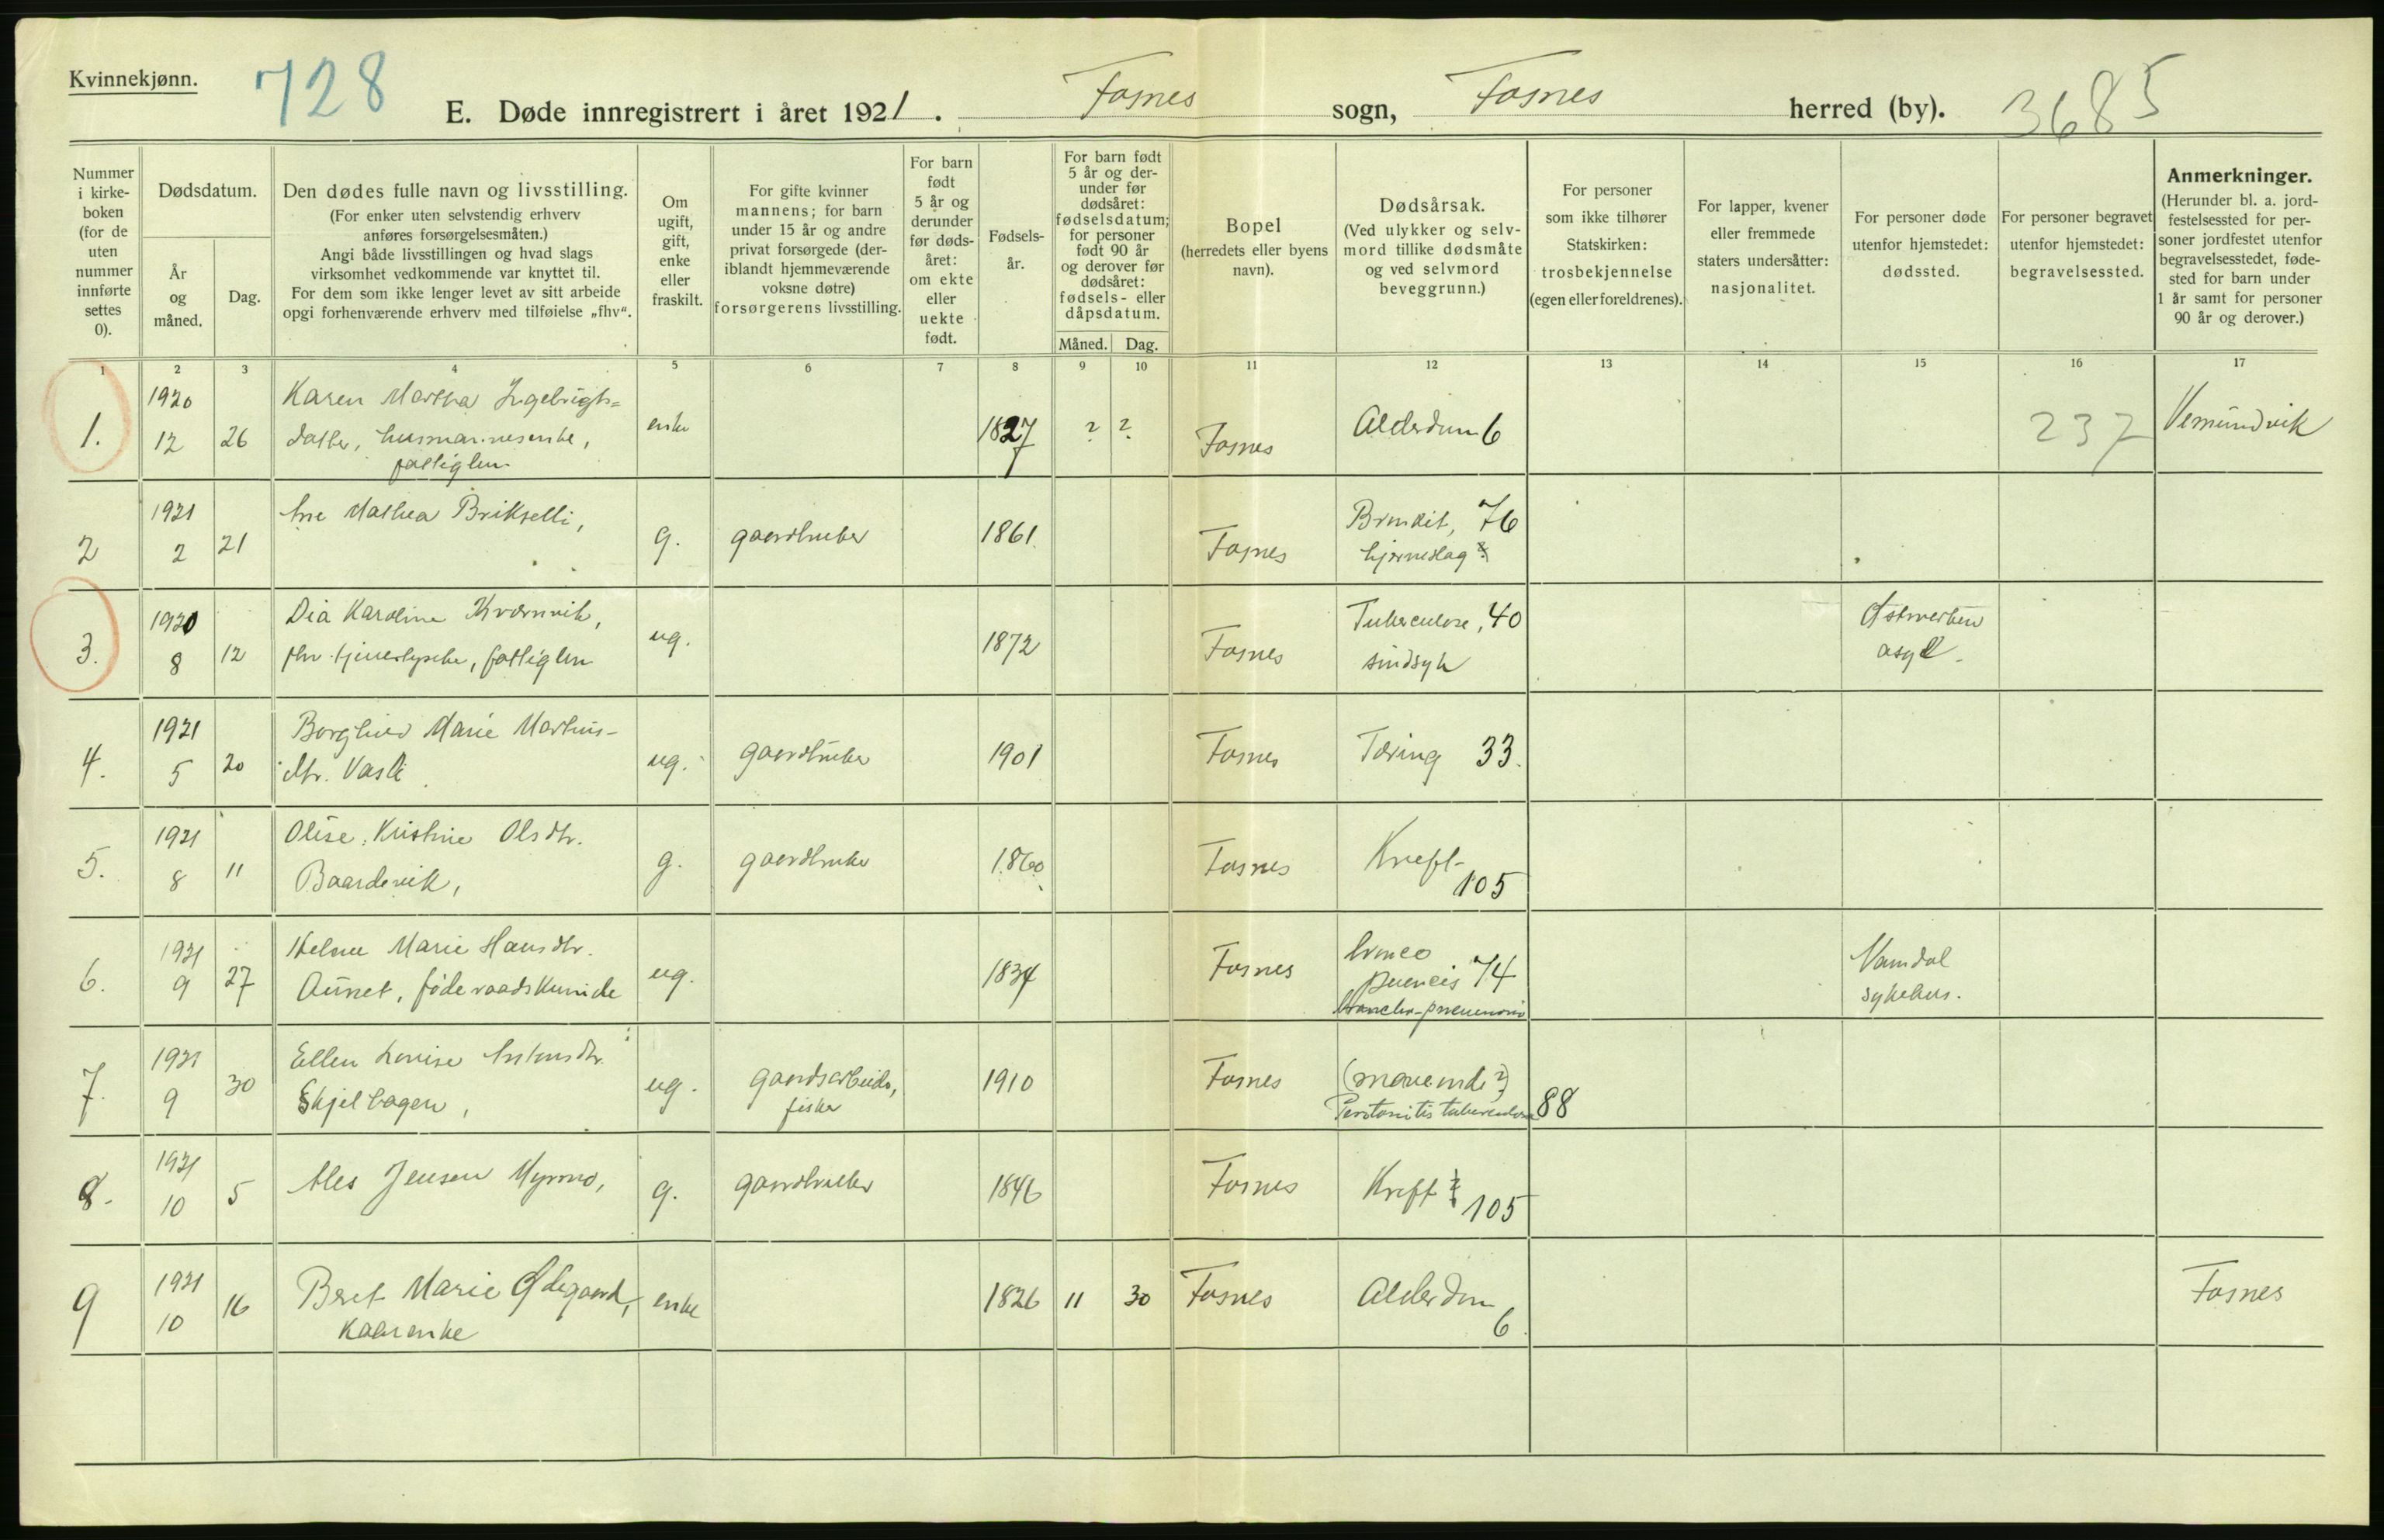 Kvinnekjønn.
728
E. Døde innregistrert i året 1921. Fosnes sogn, Fosnes herred (by). 3685
Nummer i kirke-boken (for de uten nummer innførte settes 0).
Dødsdatum.
År og måned.
Dag.
Den dødes fulle navn og livsstilling.
(For enker uten selvstendig erhverv
anføres forsørgelsesmåten.)
Angi både livsstillingen og hvad slags
virksomhet vedkommende var knyttet til.
For dem som ikke lenger levet av sitt arbeide
opgi forhenværende erhverv med tilføielse „fhv“.
Om
ugift,
gift,
enke
eller
fraskilt.
For gifte kvinner
mannens; for barn
under 15 år og andre
privat forsørgede (der-
iblandt hjemmeværende
voksne døtre)
forsørgerens livsstilling.
For barn
født
5 år og
derunder
før døds-
året:
om ekte
eller
uekte
født.
Fødsels-
år.
For barn født
5 år og der-
under før
dødsåret:
fødselsdatum;
for personer
født 90 år
og derover før
dødsåret:
fødsels- eller
dåpsdatum.
Måned. Dag.
Bopel
(herredets eller byens
navn).
Dødsårsak.
(Ved ulykker og selv-
mord tillike dødsmåte
og ved selvmord
beveggrunn.)
For personer
som ikke tilhører
Statskirken:
trosbekjennelse
(egen eller foreldrenes).
For lapper, kvener
eller fremmede
staters undersåtter:
nasjonalitet.
For personer døde
utenfor hjemstedet:
dødssted.
For personer begravet
utenfor hjemstedet:
begravelsessted.
Anmerkninger.
(Herunder bl. a. jord-
festelsessted for per-
soner jordfestet utenfor
begravelsesstedet, føde-
sted for barn under
1 år samt for personer
90 år og derover.)
1 2 3 4 5 6 7 8 9 10 11 12 13 14 15 16 17
1. 1920 12 26 Karen Martha Ingebrigts=
datter, husmannsenke,
fattiglem
enke 1827 ? ? Fosnes Alderdom 6 237 Vemundvik
2 1921 2 21 Ane Mathea Brikselli, g. gaardbruker 1861 Fosnes Bronkit, 76
hjerneslag
3. 1920 8 12 Dia Karoline Kvernvik,
fhv. tjenestepike, fattiglem
ug. 1872 Fosnes Tuberculose, 40
sindsyk
Østmarken
asyl.
4. 1921 5 20 Borghild Marie Martins-
dtr. Vasli
ug. gaardbruker 1901 Fosnes Tæring 33.
5. 1921 8 11 Olise Kristine Olsdtr.
Baardsvik,
g. gaardbruker 1860 Fosnes Kreft
105
6. 1921 9 27 Helene Marie Hansdtr.
Aunet, føderaadskvinde
ug. 1834 Fosnes 74
broncho-pneumoni
Namdal
sykehus.
7. 1921 9 30 Ellen Lovise Antonsdtr.
Skjelbagen,
ug. gaardsarbeider,
fisker
1910 Fosnes (maveonde?)
Peritonitis tuberculosa 88
8. 1921 10 5 Ales Jensen Myrmo, g. gaardbruker 1846 Fosnes Kreft
105
9 1921 10 16 Beret Marie Ødegaard,
kaarenke
enke 1826 11 30 Fosnes Alderdom
6. Fosnes